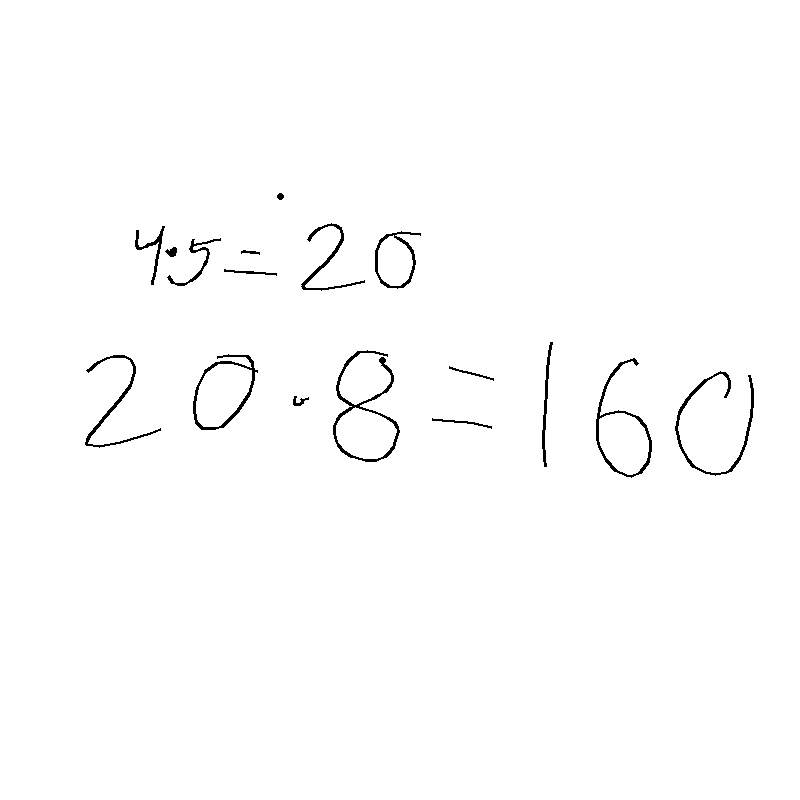 4·5=20
20·8=160